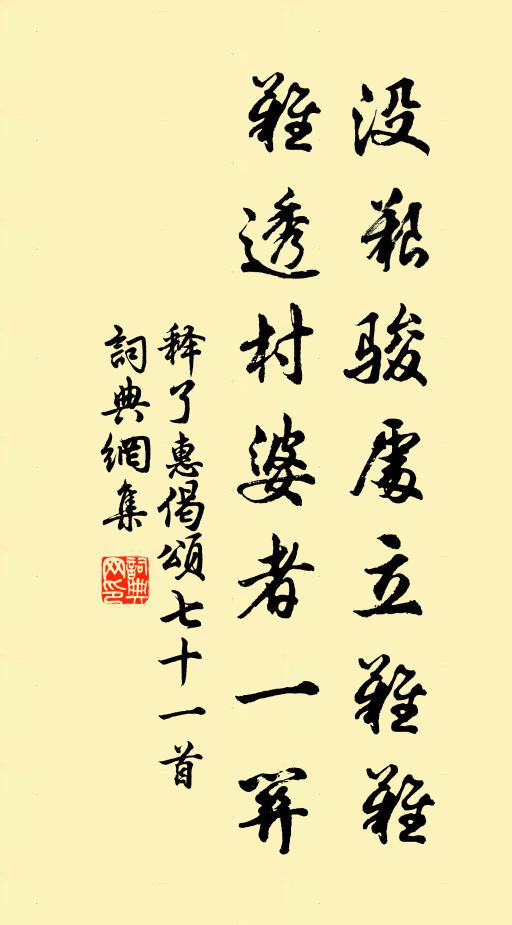 没艱骏處立難難
難透村婆者一關
释了惠偈頌七十一首
詞典網集
詞典网印